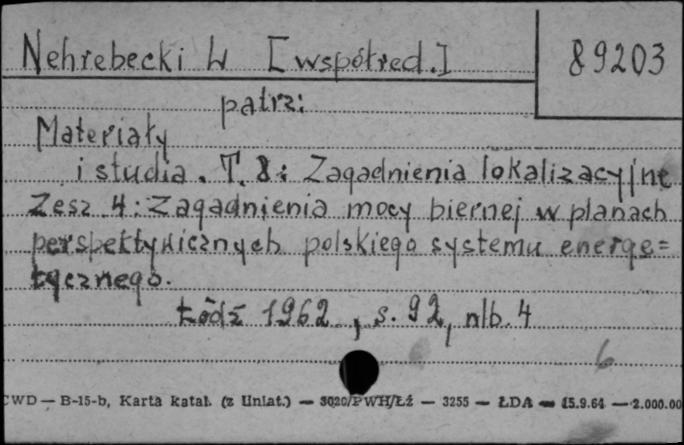 Nehrebecki W [współred.] 89203
patrz:
Materiały
i studia. T. 8: Zagadnienia lokalizacyjne
Zesz 4: Zagadnienia mocy biernej w planach
perspektywicznych polskiego systemu energe=
tycznego.
Łódź 1962, s. 92, nlb. 4
6
CWD — B-15-b, Karta katal. (z Uniat.) — 3020/PWH/Łź — 3255 — ŁDA — 15.9.61 — 2.000.00